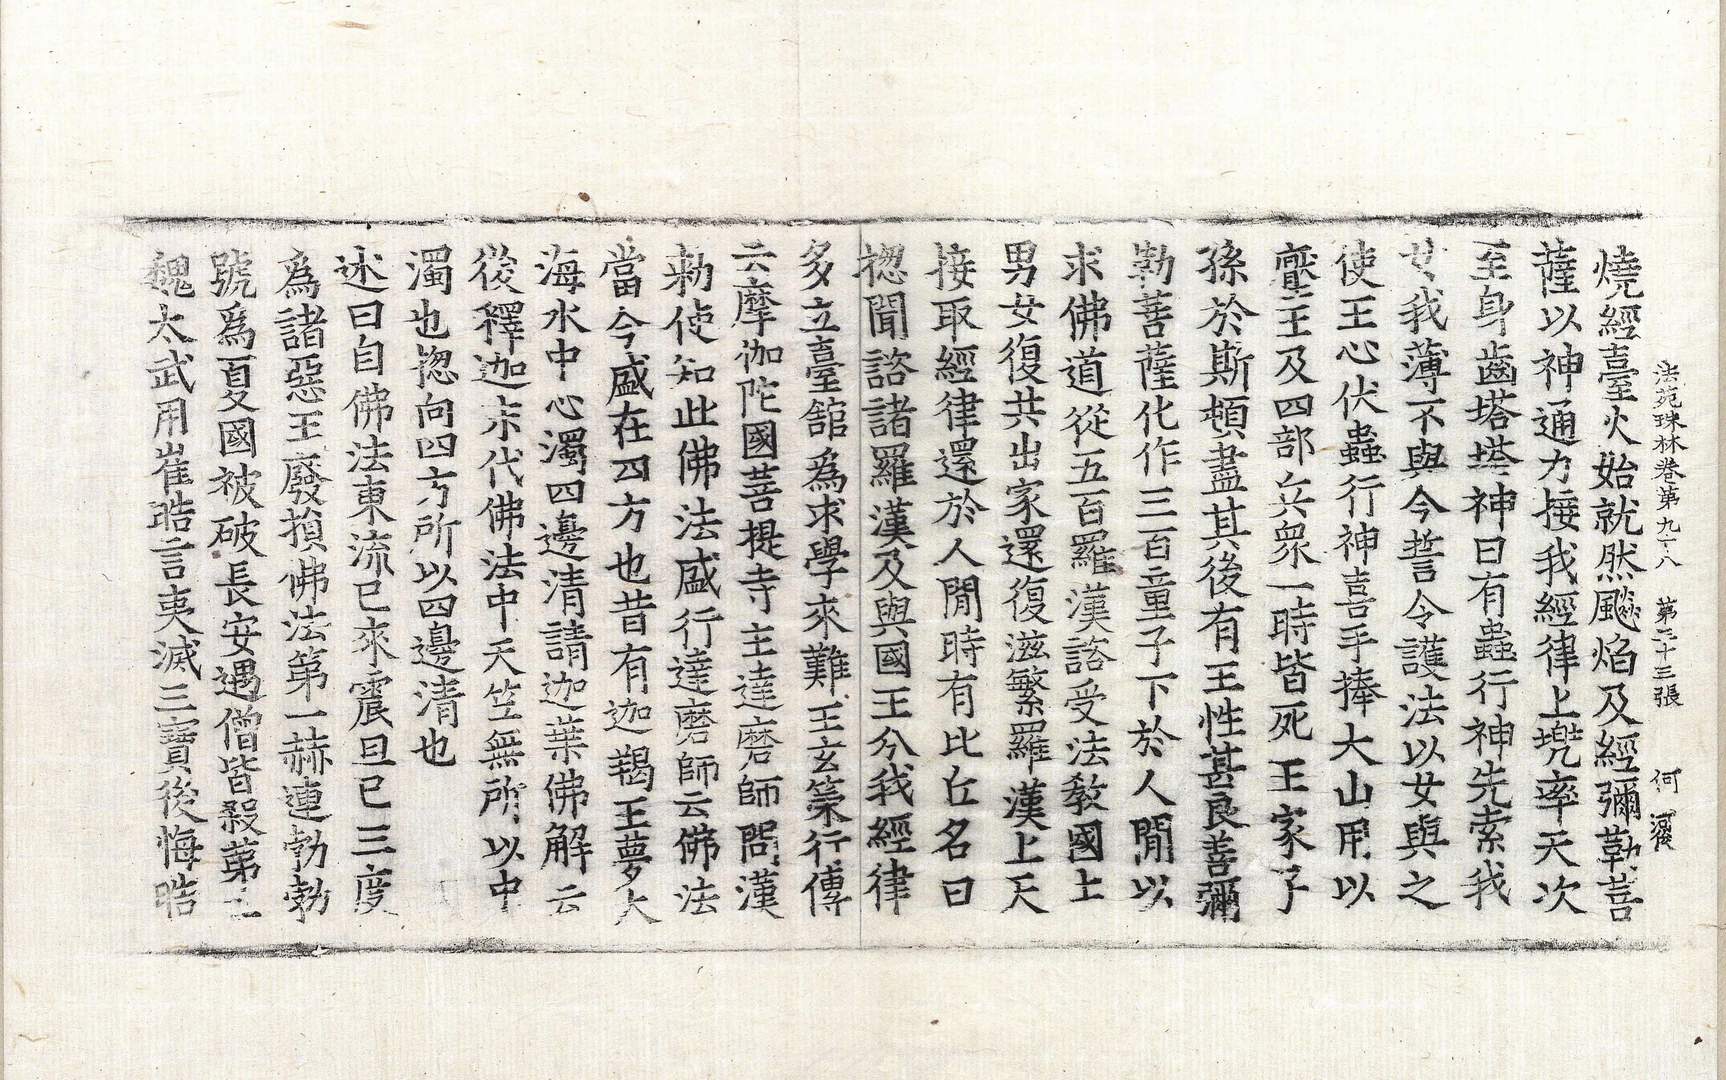 法苑珠林卷第九十八　第三十三張　何
燒經臺火始就然飈焰及經彌勒菩
薩以神通力接我經律上兠率天次
至身齒塔塔神曰有蟲行神先索我
女我薄不與今誓令護法以女與之
使王心伏蟲行神喜手捧大山用以
壓王及四部兵衆一時皆死王家了
孫於斯頓盡其後有王性甚良善彌
勒菩薩化作三百童子下於人閒以
求佛道從五百羅漢諮受法教國上
男女復共出家還復滋繁羅漢上天
接取經律還於人閒時有比丘名曰
揔聞諮諸羅漢及與國王分我經律
多立臺舘爲求學來難王玄策行傳
云摩伽陀國菩提寺主達磨師問漢
勑使知此佛法盛行達磨師云佛法
當今盛在四方也昔有迦羯王夢大
海水中心濁四邊清請迦葉佛解云
後釋迦末代佛法中天竺無所以中
濁也揔向四方所以四邊清也
述曰自佛法東流已來震旦已三度
爲諸惡王廢損佛法第一赫連勃勃
號爲夏國被破長安遇僧皆殺第二
魏太武用崔晧言夷滅三寶後悔晧